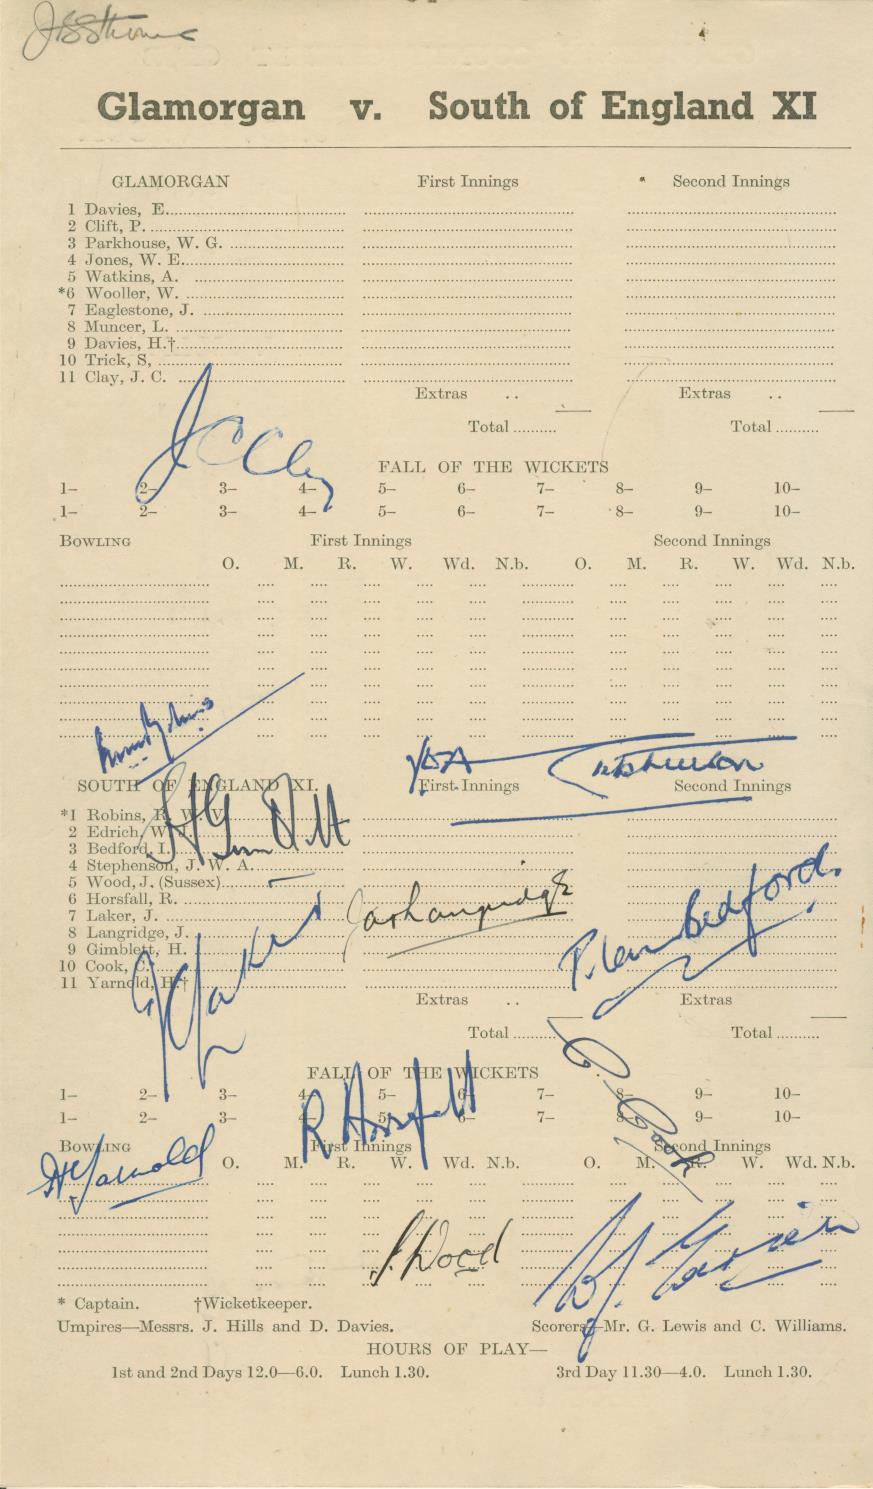 Glamorgan v. South of England XI
GLAMORGAN First Innings Second Innings
1 Davies, E.
2 Clift, P.
3 Parkhouse, W. G.
4 Jones, W. E.
5 Watkins, A.
*6 Wooller, W.
7 Eaglestone, J.
8 Muncer, L.
9 Davies, H.†
10 Trick, S,
11 Clay, J. C.
Extras .. Extras ..
Total .......... Total ..........
J C Clay
FALL OF THE WICKETS
1– 2– 3– 4– 5– 6– 7– 8– 9– 10–
1– 2– 3– 4– 5– 6– 7– 8– 9– 10–
BOWLING First Innings Second Innings
O. M. R. W. Wd. N.b. O. M. R. W. Wd. N.b.
JWA Stephenson
SOUTH OF ENGLAND XI. First Innings Second Innings
*1 Robins, R. W. V.
2 Edrich, W. J.
3 Bedford, I.
4 Stephenson, J. W. A.
5 Wood, J. (Sussex)
6 Horsfall, R.
7 Laker, J.
8 Langridge, J.
9 Gimblett, H.
10 Cook, C.
11 Yarnold, H.†
H Gimblett
Jas Langridge
Bedford.
J C Laker
Extras .. Extras
Total .......... Total ..........
C. Cook
FALL OF THE WICKETS
1– 2– 3– 4– 5– 6– 7– 8– 9– 10–
1– 2– 3– 4– 5– 6– 7– 8– 9– 10–
R Horsfall
BOWLING First Innings Second Innings
O. M. R. W. Wd. N.b. O. M. R. W. Wd. N.b.
H Yarnold
J. Wood
W.J. Edrich
* Captain. †Wicketkeeper.
Umpires—Messrs. J. Hills and D. Davies. Scorers—Mr. G. Lewis and C. Williams.
HOURS OF PLAY—
1st and 2nd Days 12.0—6.0. Lunch 1.30. 3rd Day 11.30—4.0. Lunch 1.30.